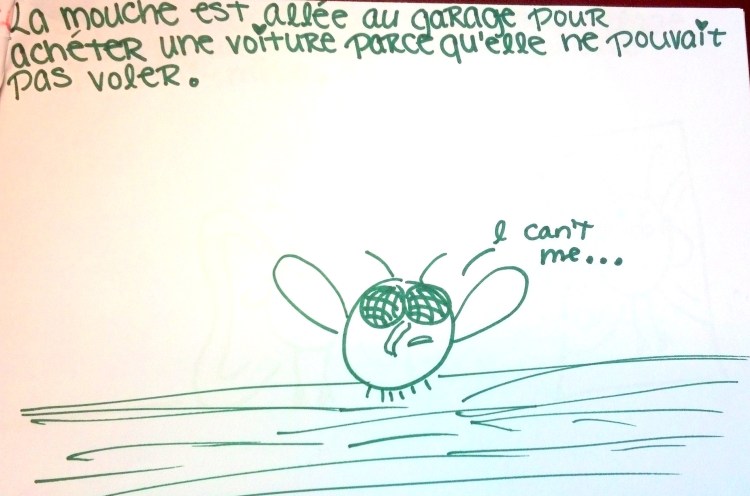 La mouche est allée au garage pour
achéter une voiture parce qu'elle ne pouvait
pas voler.
I can't
me...